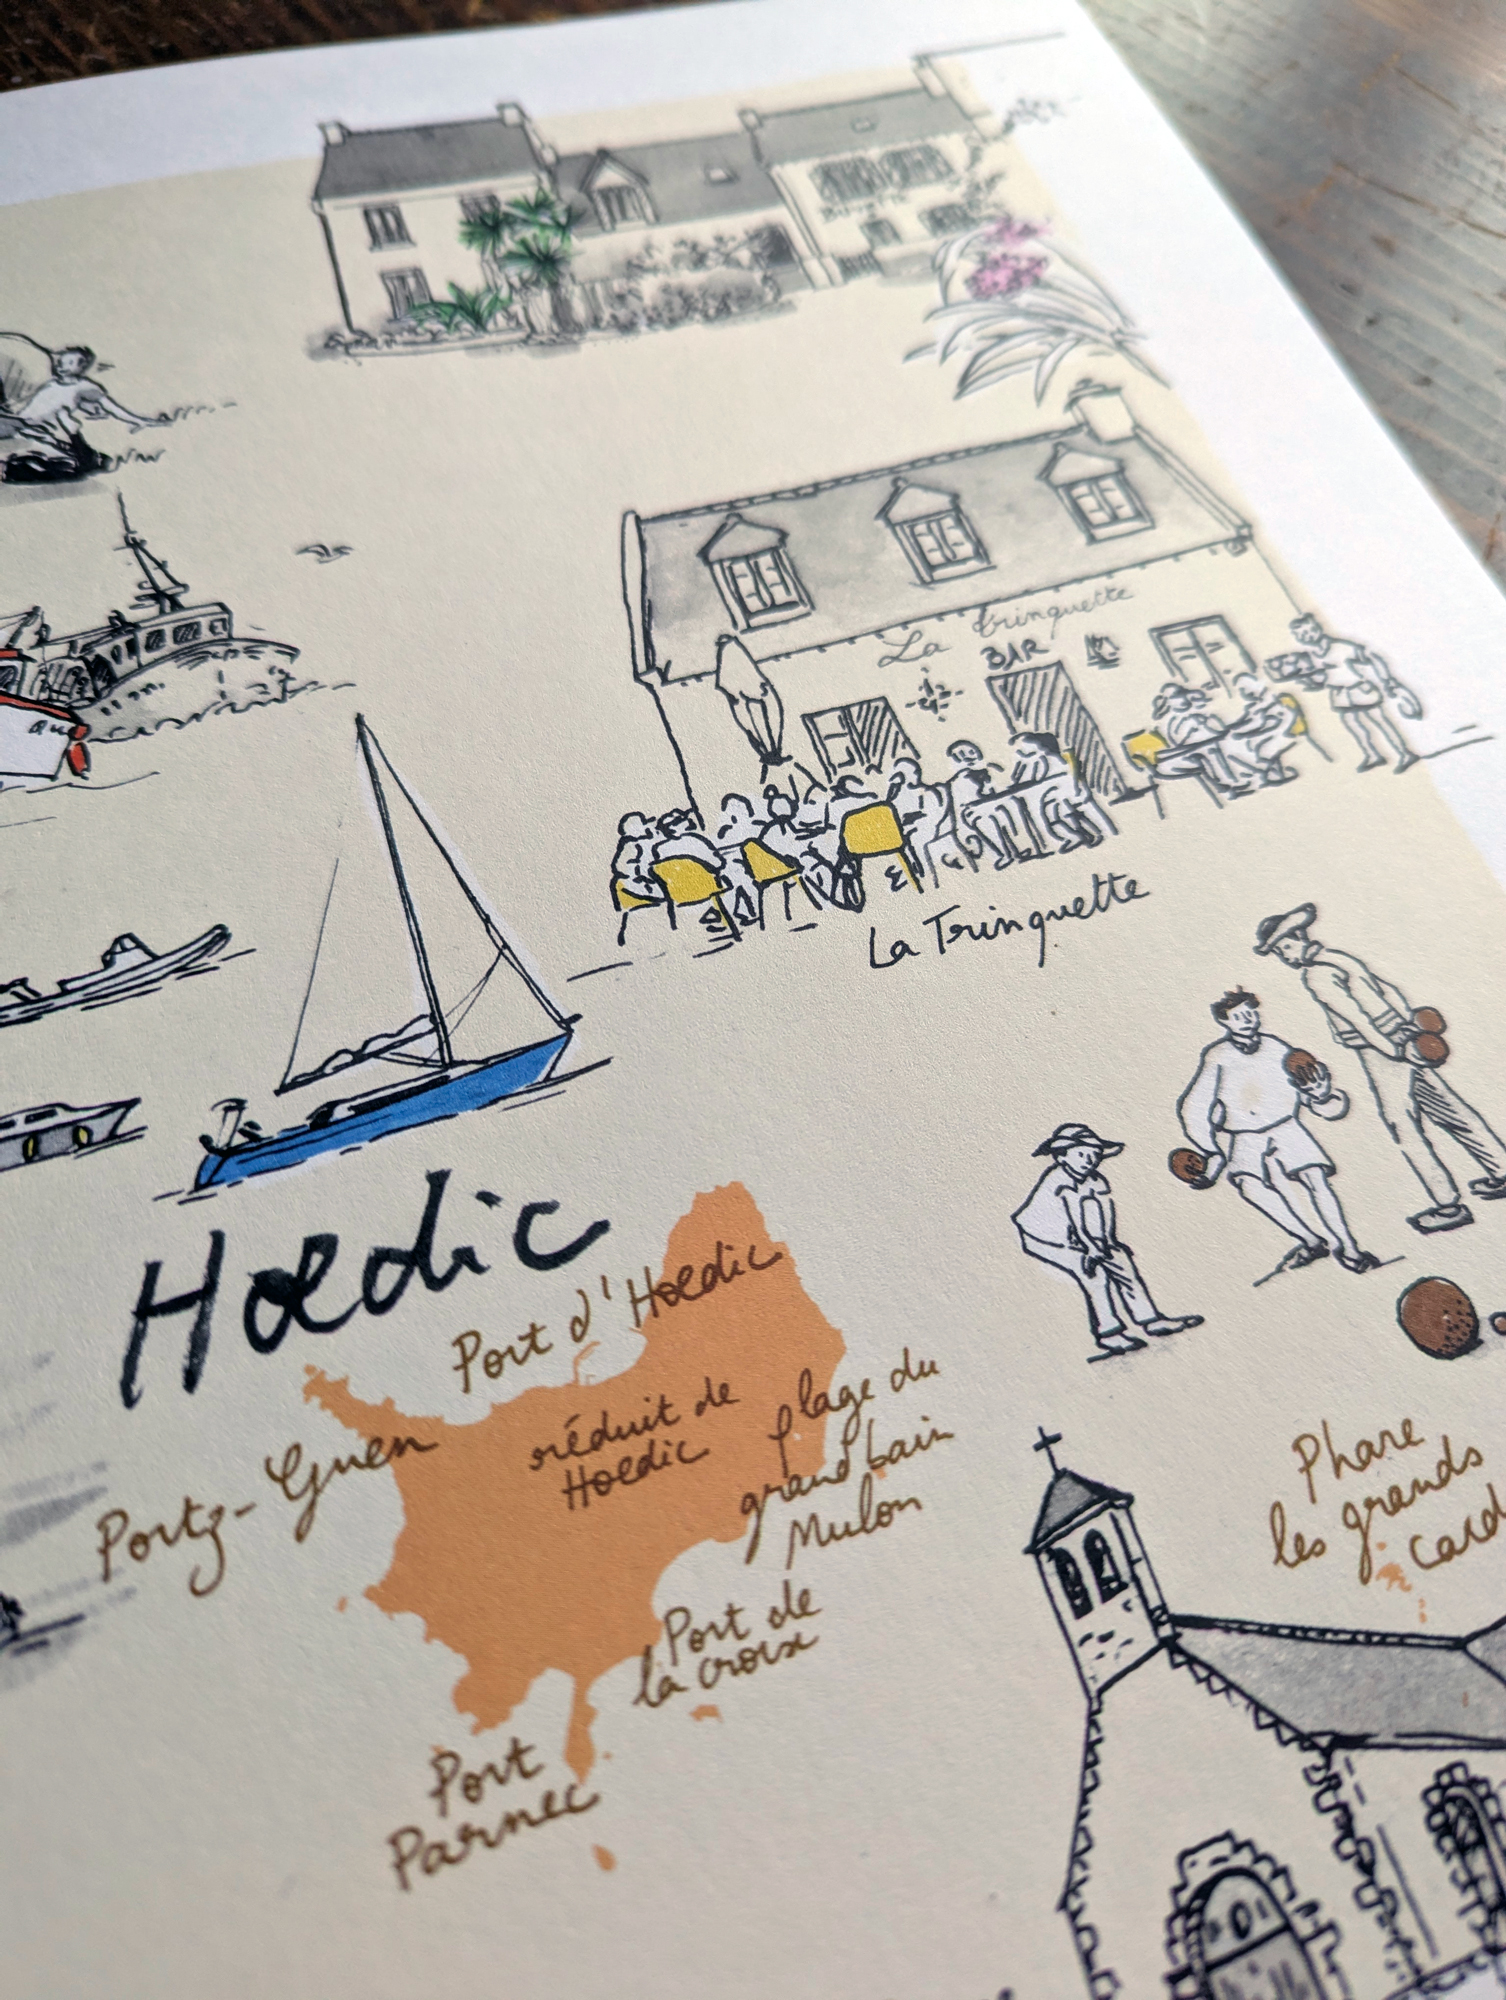 La trinquette
BAR
La Trinquette
Hœdic
Port d'Hœdic
réduit de
Hœdic
plage du
grand bain
Mulon
Portz-Guen
Phare
les grands
card
Port de
la croix
Port
Parnec